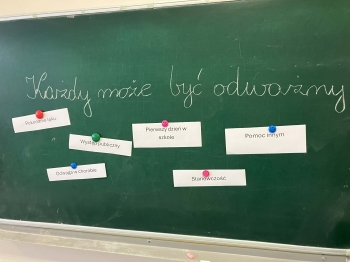 Każdy może być odważny
Pokonanie lęku
Występ publiczny
Pierwszy dzień w
szkole
Pomoc innym
Odwaga w chorobie
Stanowczość